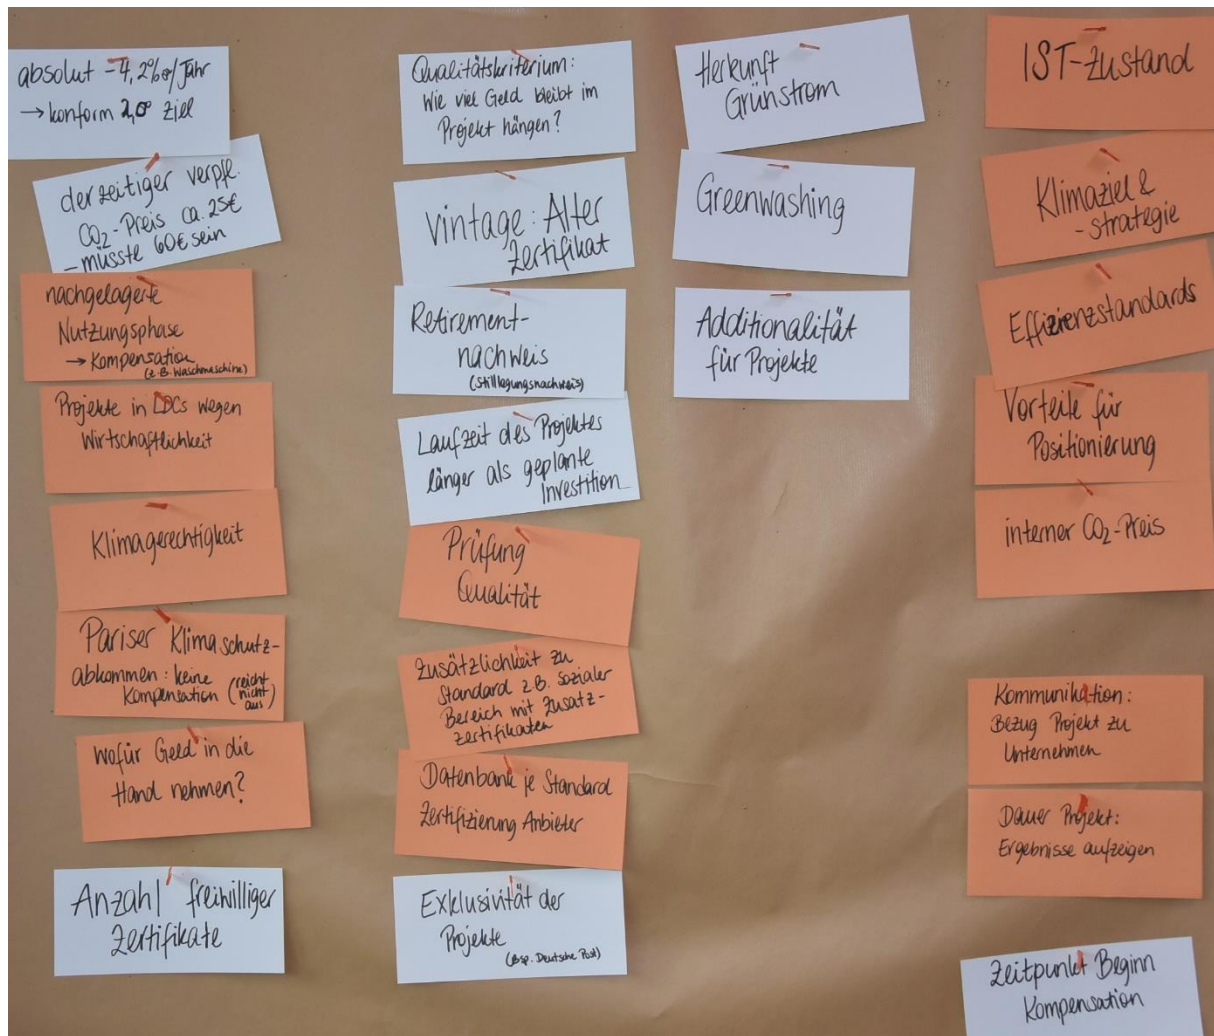 absolut -4,2%/Jahr
→ konform 2,0° Ziel
derzeitiger verpfl.
CO₂-Preis ca. 25€
– müsste 60€ sein
nachgelagerte
Nutzungsphase
→ Kompensation
(z.B. Waschmaschine)
Projekte in LDCs wegen
Wirtschaftlichkeit
Klimagerechtigkeit
Pariser Klimaschutz-
abkommen: keine
Kompensation (reicht
nicht
aus)
wofür Geld in die
Hand nehmen?
Anzahl freiwilliger
Zertifikate
Qualitätskriterium:
Wie viel Geld bleibt im
Projekt hängen?
Vintage: Alter
Zertifikat
Retirement-
nachweis
(Stilllegungsnachweis)
Laufzeit des Projektes
länger als geplante
Investition
Prüfung
Qualität
Zusätzlichkeit zu
Standard z.B. sozialer
Bereich mit Zusatz-
zertifikaten
Datenbank je Standard
Zertifizierung Anbieter
Exklusivität der
Projekte
(Bsp. Deutsche Post)
Herkunft
Grünstrom
Greenwashing
Additionalität
für Projekte
IST-Zustand
Klimaziel &
-strategie
Effizienzstandards
Vorteile für
Positionierung
interner CO₂-Preis
Kommunikation:
Bezug Projekt zu
Unternehmen
Dauer Projekt:
Ergebnisse aufzeigen
Zeitpunkt Beginn
Kompensation